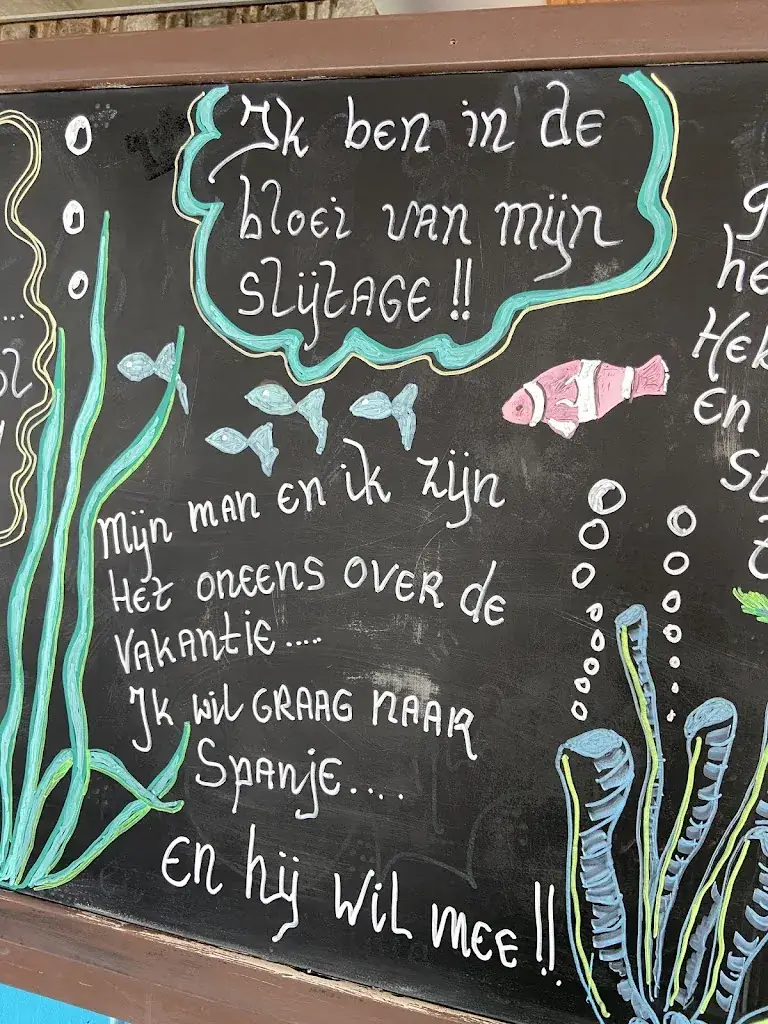 Ik ben in de
bloei van mijn
slijtAGE !!
Mijn man en ik zijn
Het oneens over de
vakantie.....
Ik wil GRAAG NAAR
Spanje....
en hij wil mee !!
he
Hek
en